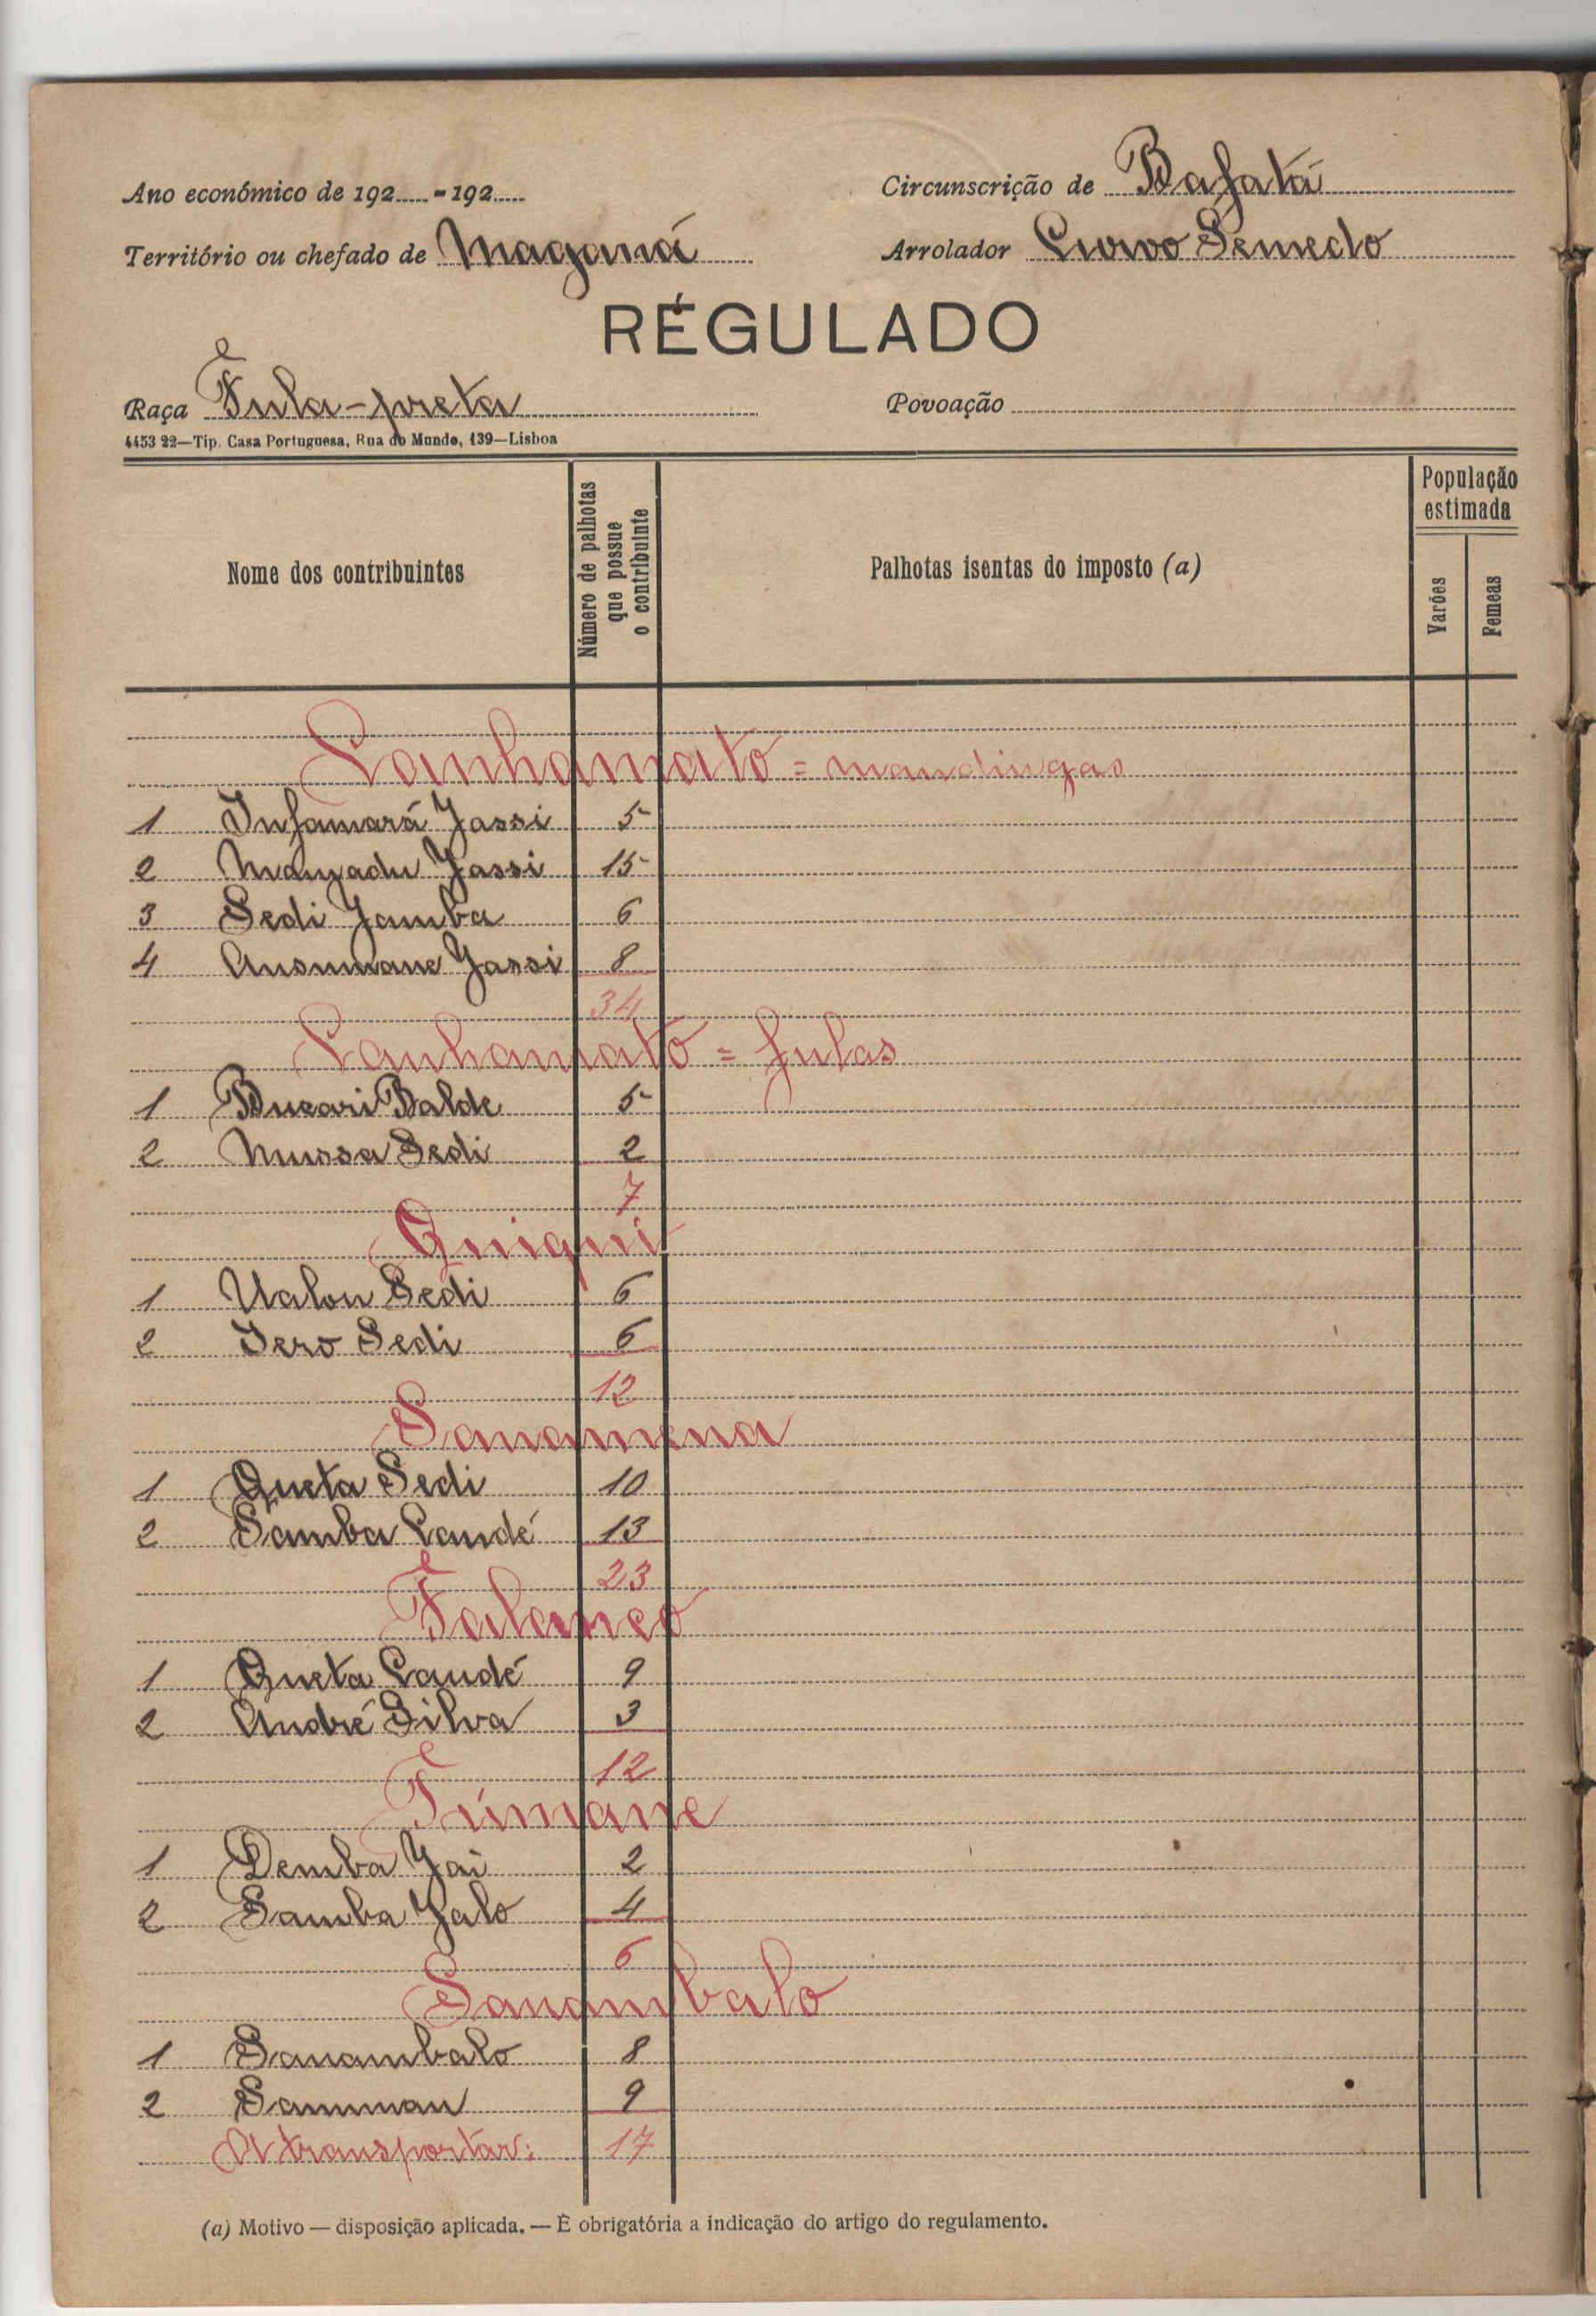 Ano económico de 192.....-192.....
Circunscrição de Bafatá
Território ou chefado de Maganá
Arrolador Livivo Semedo
RÉGULADO
Raça Fula-preta
Povoação
4453 22—Tip. Casa Portuguesa, Rua do Mundo, 139—Lisboa
Nome dos contribuintes
Número de palhotas que possue o contribuinte
Palhotas isentas do imposto (a)
População estimada
Varões
Femeas
Canhamato = mandingas
1 Infamará Jassi 5
2 Jassi 15
3 Sedi Jamba 6
4 Ansumane Jassi 8
34
Canhamato = fulas
1 Bucari Balde 5
2 Mussa Sedi 2
7
Quiqui
1 Ualou Sedi 6
2 Iero Sedi 6
12
Sanamena
1 Queta Sedi 10
2 Samba Candé 13
23
Falanco
1 Queta Candé 9
2 André Silva 3
12
Túmane
1 Demba Jai 2
2 Samba Jalo 4
6
Sanambalo
1 Sanambalo 8
2 9
A transportar: 17
(a) Motivo — disposição aplicada. — È obrigatória a indicação do artigo do regulamento.